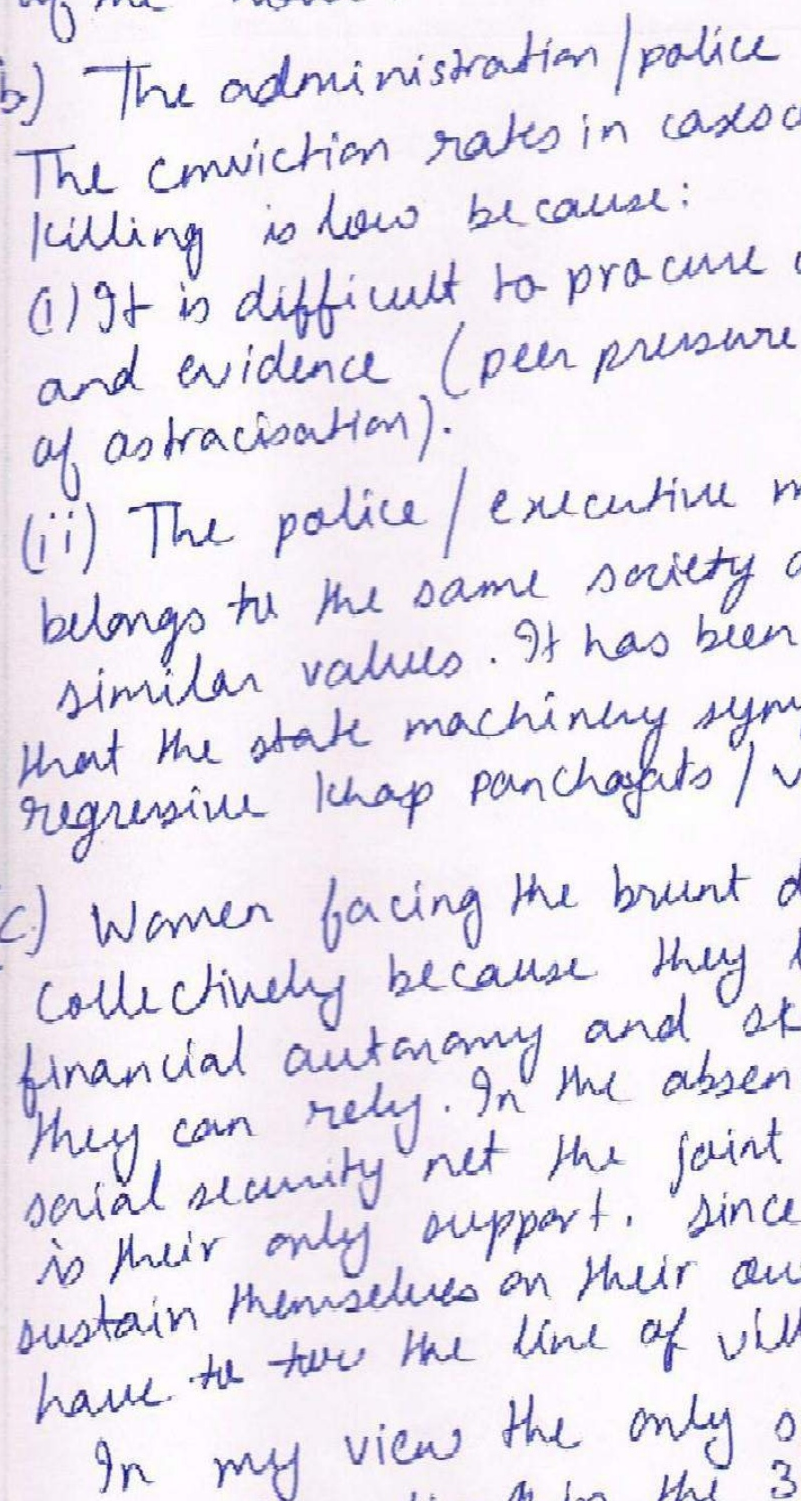 of the
b) The administration/police
The conviction rates in cases o
killing is low because:
(i) It is difficult to procure
and evidence (peer pressure
of astracisation).
(ii) The police / executive m
belongs to the same society a
similar values. It has been
that the state machinery sym
regressive khap panchayats /
c) Women facing the brunt d
collectively because they l
financial autonomy and sk
they can rely. In the absen
social security net the joint
is their only support. Since
sustain themselves on their ow
have to tow the line of vill
In my view the only s
the 3